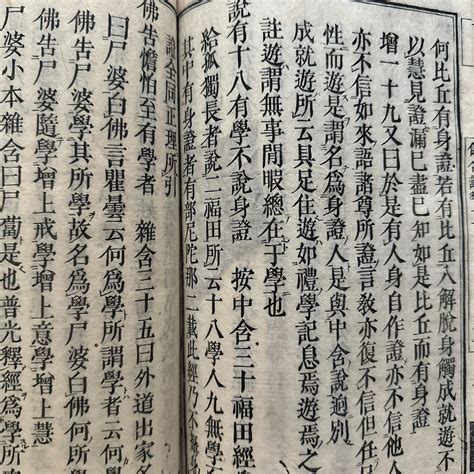 何比丘有身證若有比丘入解脫身觸成就遊不
以慧見證漏已盡已知如是比丘而有身證
增一十九又曰於是有人身自作證亦不信他
亦不信如來語諸尊所證言教亦復不信但
性而遊是謂名為身證人是與中含說迥別
成就遊所云具足住遊如禮學記息焉遊焉之
註遊謂無事閒暇總在于學也
說有十八有學不說身證 按中含三十福田經
給孤獨長者說二福田所云十八學人九無學人
其中有身證者有部尼陀那二載此經乃不
證全同正理所引
佛告憺怕至有學者 雜含三十五曰外道出家名
曰尸婆白佛言瞿曇云何為學所謂學者云何
佛告尸婆學其所學故名為學尸婆白佛何所學
佛告尸婆隨學增上戒學增上意學增上慧
尸婆小本雜含曰尸蔔是也普光釋經為學所